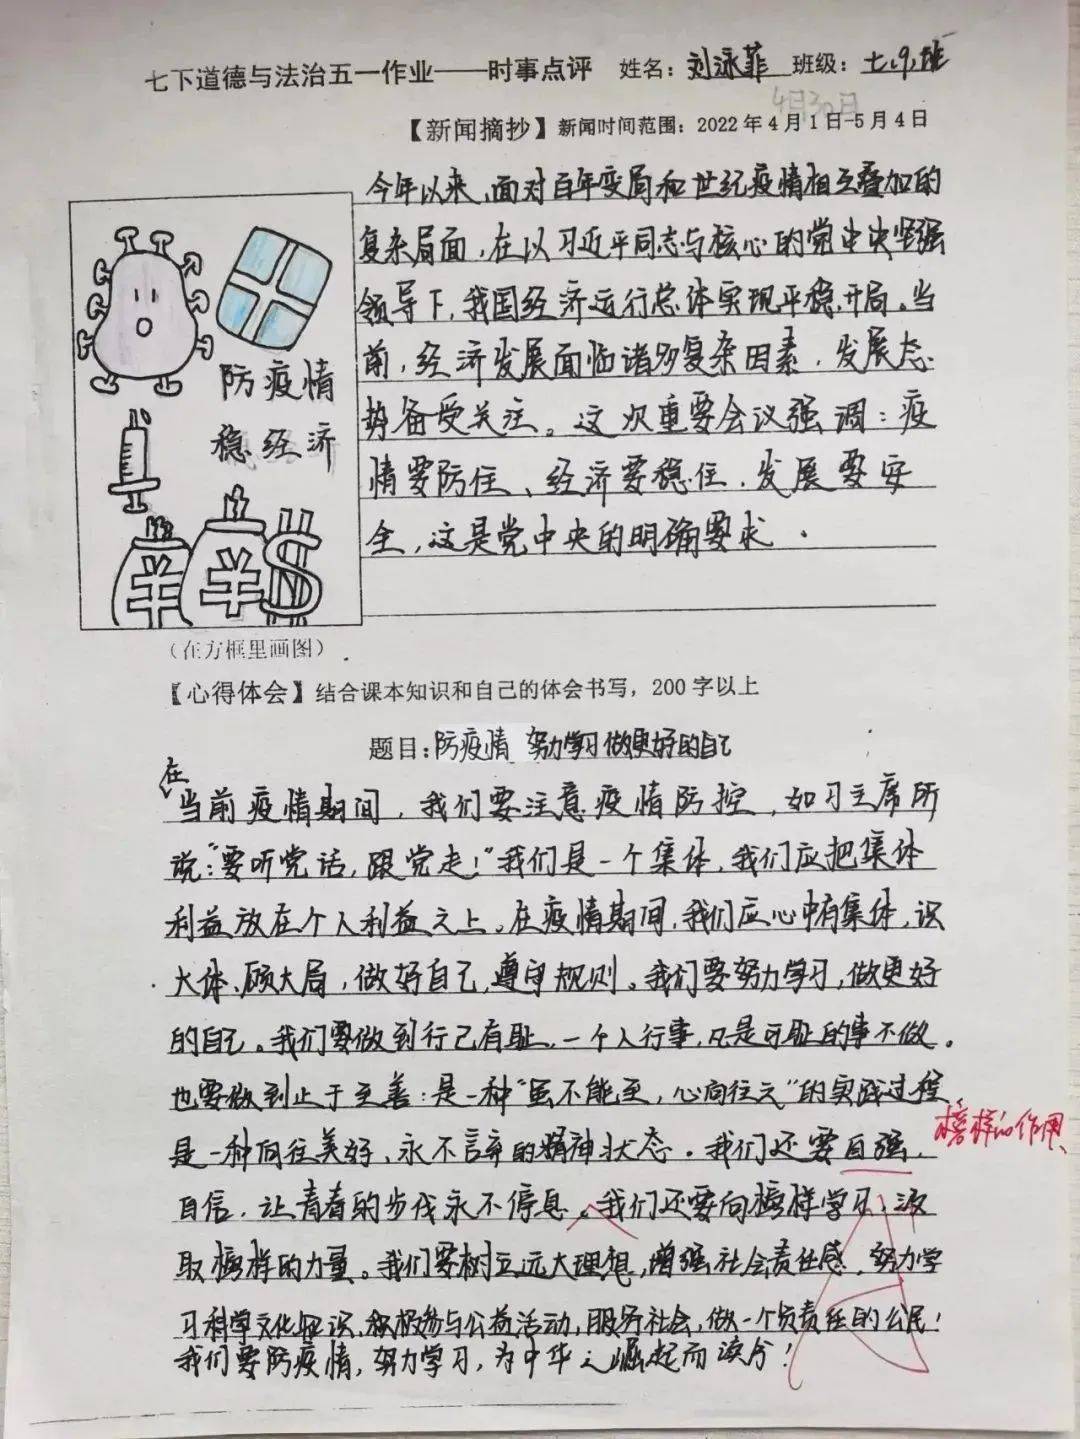 七下道德与法治五一作业——时事点评 姓名：刘泳菲 班级：七.9.班
4月30日
【新闻摘抄】新闻时间范围：2022年4月1日-5月4日
今年以来，面对百年变局和世纪疫情相互叠加的
复杂局面，在以习近平同志为核心的党中央坚强
领导下，我国经济运行总体实现平稳开局。当
前，经济发展面临诸多复杂因素，发展态
势备受关注。这次重要会议强调：疫
情要防住、经济要稳住，发展要安
全，这是党中央的明确要求．
防疫情
稳经济
￥ ￥ $
（在方框里画图）
【心得体会】结合课本知识和自己的体会书写，200字以上
题目：防疫情 努力学习做更好的自己
在当前疫情期间，我们要注意疫情防控，如习主席所
说：“要听党话，跟党走！”我们是一个集体，我们应把集体
利益放在个人利益之上。在疫情期间，我们应心中有集体，识
大体、顾大局，做好自己，遵守规则。我们要努力学习，做更好
的自己。我们要做到行己有耻，一个人行事，凡是可耻的事不做。
也要做到止于至善：是一种“虽不能至，心向往之”的实践过程，
是一种向往美好、永不言弃的精神状态。我们还要自强，
榜样的作用、
自信，让青春的步伐永不停息。我们还要向榜样学习，汲
取榜样的力量。我们要树立远大理想，增强社会责任感，努力学
习科学文化知识，积极参与公益活动，服务社会，做一个负责任的公民！
我们要防疫情，努力学习，为中华之崛起而读书！
A